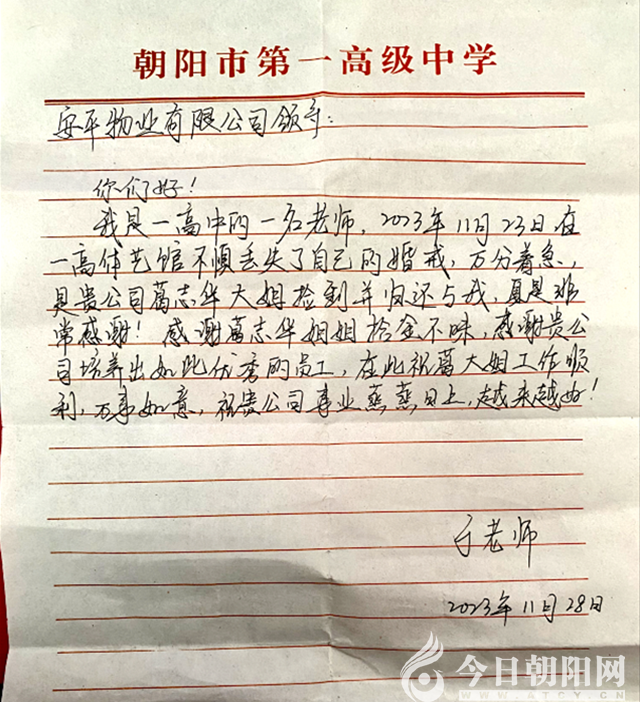 朝阳市第一高级中学
安平物业有限公司领导:
你们好!
我是一高中的一名老师,2023年11月23日在
一高体艺馆不慎丢失了自己的婚戒,万分着急,
是贵公司葛志华大姐捡到并归还与我,真是非
常感谢!感谢葛志华姐姐拾金不昧,感谢贵公
司培养出如此优秀的员工,在此祝葛大姐工作顺
利,万事如意,祝贵公司事业蒸蒸日上,越来越好!
于老师
2023年11月28日
今日朝阳网
WWW.ATCY.CN